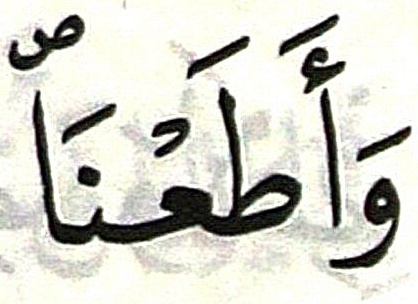 وَأَطَعْنَا ۖ ص